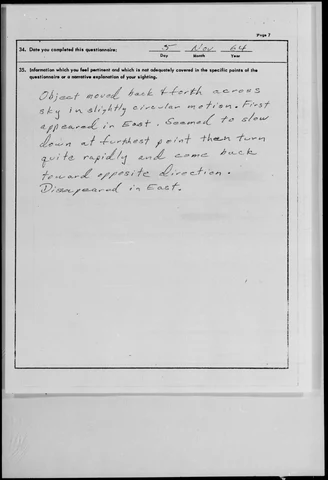 Page 7
34. Date you completed this questionnaire: 5 Nov 64
Day Month Year
35. Information which you feel pertinent and which is not adequately covered in the specific points of the
questionnaire or a narrative explanation of your sighting.
Object moved back & forth across
sky in slightly circular motion. First
appeared in East. Seemed to slow
down at furthest point then turn
quite rapidly and come back
toward opposite direction.
Disappeared in East.